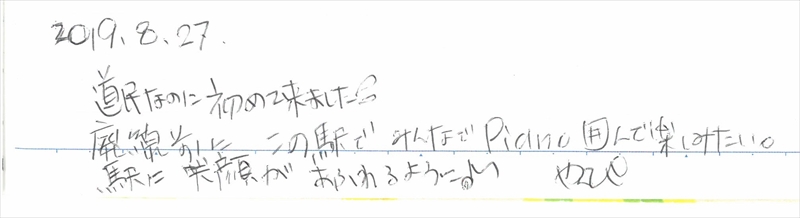 2019.8.27.
道民なのに初めて来ました
廃線前に この駅で みんなで Piano 囲んで楽しみたい。
駅に 笑顔が あふれるように